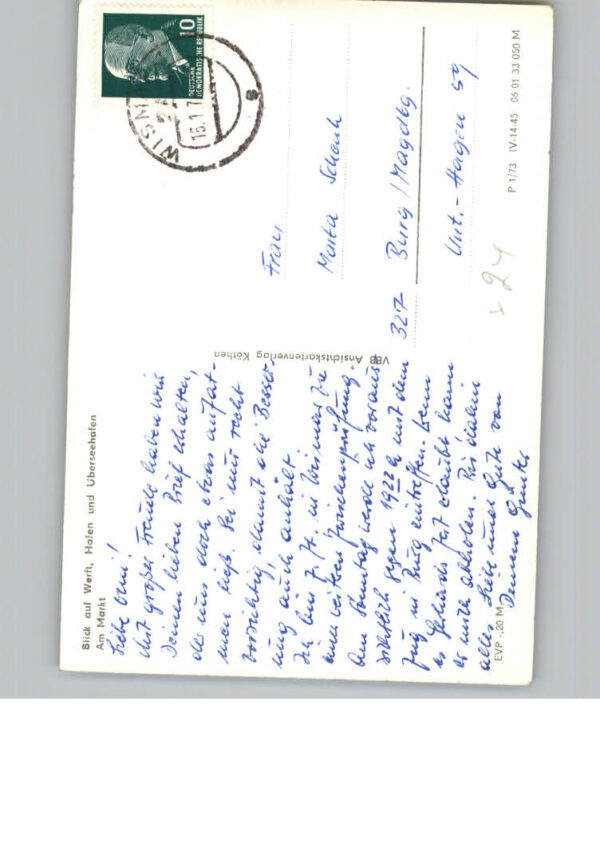 Blick auf Werft, Hafen und Überseehafen
Am Markt
Liebe Omi!
Mit großer Freude haben wir
Deinen lieben Brief erhalten,
der uns doch etwas aufat-
men ließ. Sei nur recht
vorsichtig, damit die Besser-
ung auch anhält.
Ich bin z. Zt. in Wismar zu
einer Zwischenprüfung.
Am Sonntag werde ich voraus-
sichtlich gegen 19 22 h mit dem
Zug in Burg eintreffen. Wenn
es Gerhards Zeit erlaubt kann
er mich abholen. Bis dahin
alles Liebe und Gute von
Deinem
EVP -,20 M
VEB Ansichtskartenverlag Köthen
WISM
15.1.7
10
DEUTSCHE
DEMOKRATISCHE REPUBLIK
Frau
Marta Schenk
327 Burg / Magdbg.
Unt. - Hagen 59
24
P 1/73 IV-14-45 06 01 33 050 M